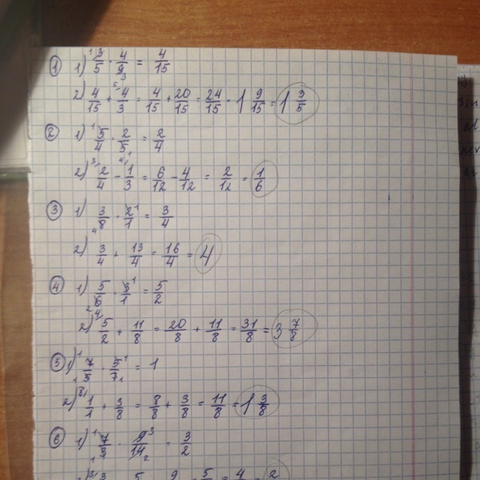 ① 1) 3/5 · 4/9 = 4/15
2) 4/15 + 4/3 = 4/15 + 20/15 = 24/15 = 1 9/15 = 1 3/5
② 1) 5/4 · 2/5 = 2/4
2) 2/4 - 1/3 = 6/12 - 4/12 = 2/12 = 1/6
③ 1) 3/8 · 2/1 = 3/4
2) 3/4 + 13/4 = 16/4 = 4
④ 1) 5/6 · 3/1 = 5/2
2) 5/2 + 11/8 = 20/8 + 11/8 = 31/8 = 3 7/8
⑤ 1) 7/5 · 5/7 = 1
2) 1/1 + 3/8 = 8/8 + 3/8 = 11/8 = 1 3/8
⑥ 1) 7/3 · 9/14 = 3/2